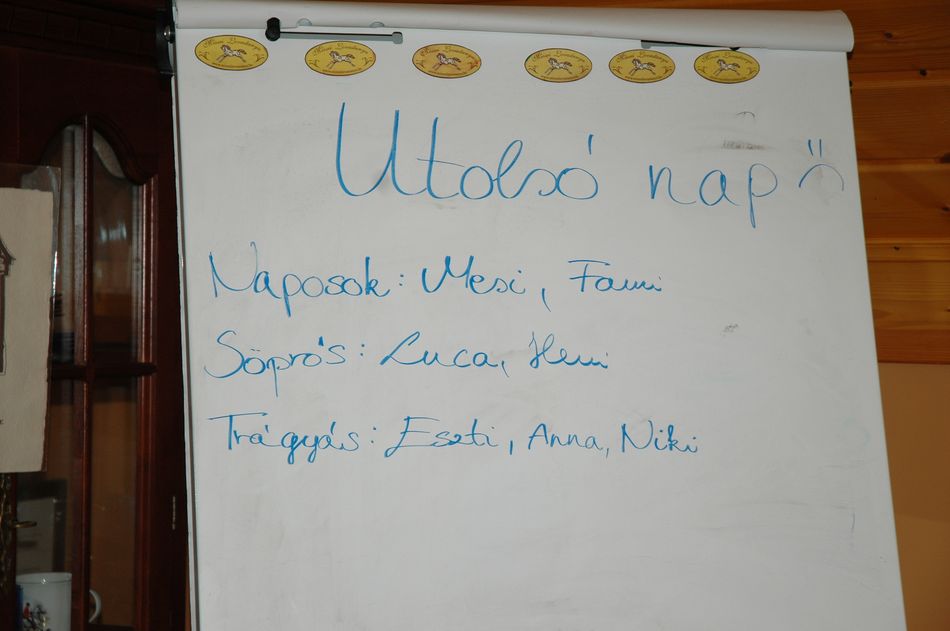 Utolsó nap
Naposok: Mesi, Fanni
Söprős: Luca, Heni
Trágyás: Eszti, Anna, Niki